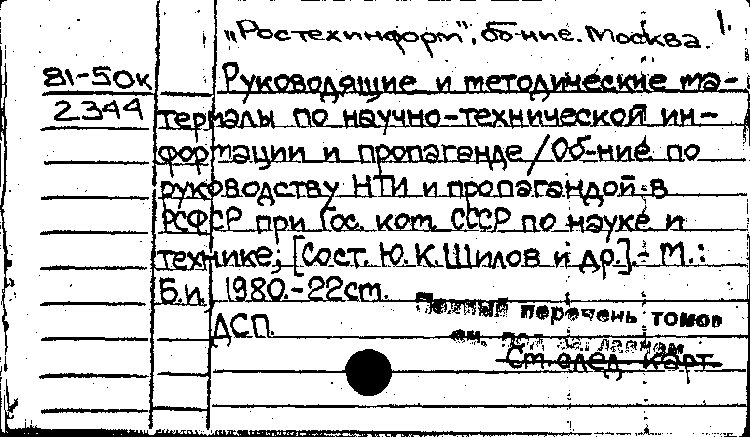 „Ростехинформ", об-ние. Москва. 1.
81-50к Руководящие и методические ма-
2344 териалы по научно-технической ин-
формации и пропаганде/Об-ние по
руководству НТИ и пропагандой в
РСФСР при Гос. ком. СССР по науке и
технике; [Сост. Ю.К.Шилов и др.].- М.:
Б.и., 1980.-22см.
Полный перечень томов
ДСП.
см. под заглавием
См. след. карт.